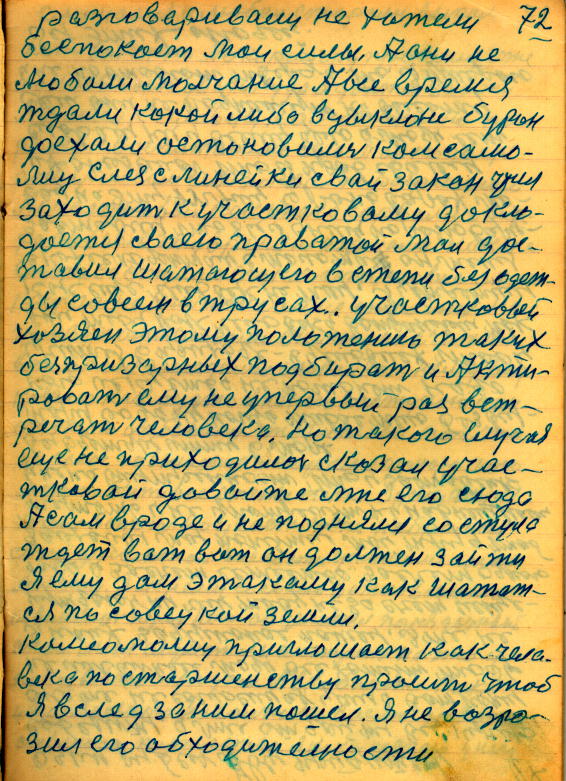 разговаривали не хотели 72
беспокоет мои силы. А они не
любали молчание А все время
ждали какой либо в уыклоне буран
доехали остоновилис комсамо-
лиц слез с линейки свай закон чуил
заходит к участковаму докло-
доетя своего праватой мол дос-
тавил шатающего в степи без одеж-
ды совсем в трусах.. участковый
хозяен этому положению таких
безпризарных подбирать и Акти-
ровать ему не упервый раз вст-
речат человека. Но такого случая
еще не приходилос сказал учас-
тковай давайте мне его сюда
А сам вроде и не поднялся со стула
ждет ват ват он должен зайти
Я ему дам этакаму как шатат-
ся по совецкой земли.
комсомолиц приглошает как чела-
века по старшенству просит чтоб
Я вслед за ним пошел. Я не возро-
зил его обходителности